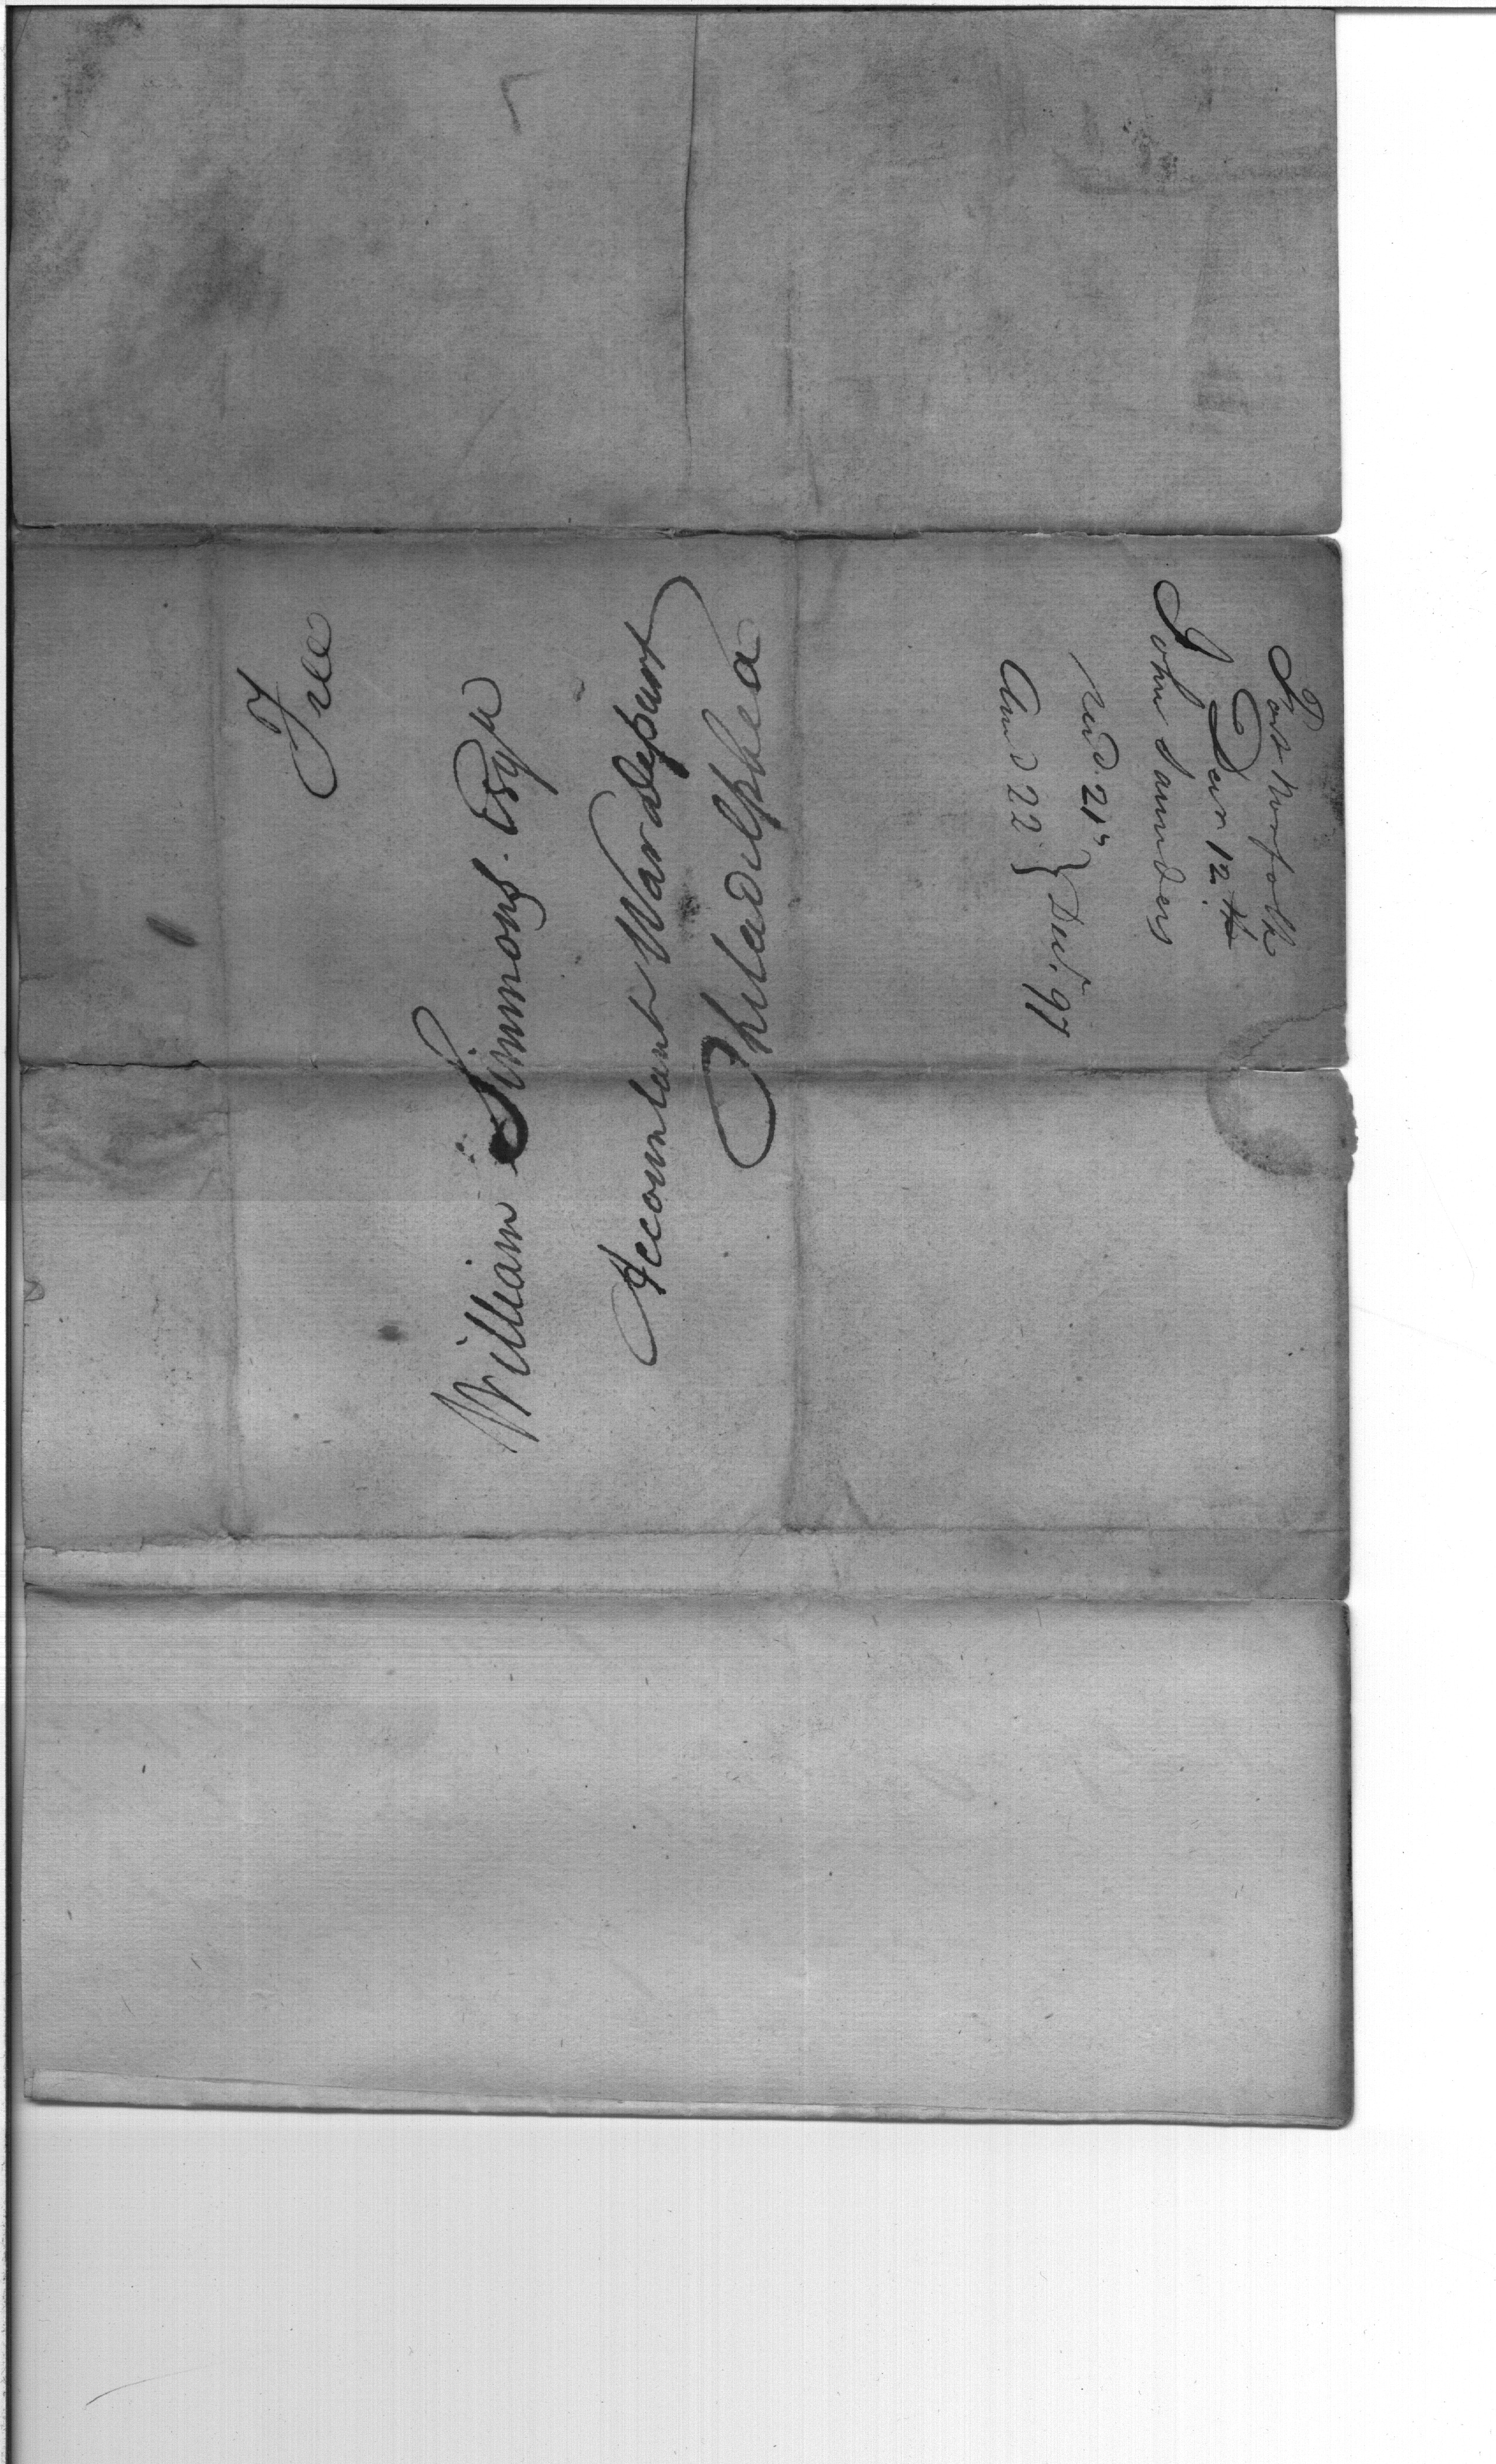 Free
William Simmons. Esqr
Accountant War depart
Philadelphia
Fort Norfolk
Decr 12th
John Saunders
Recd. 21st
Ansd 22 } Decr. 97